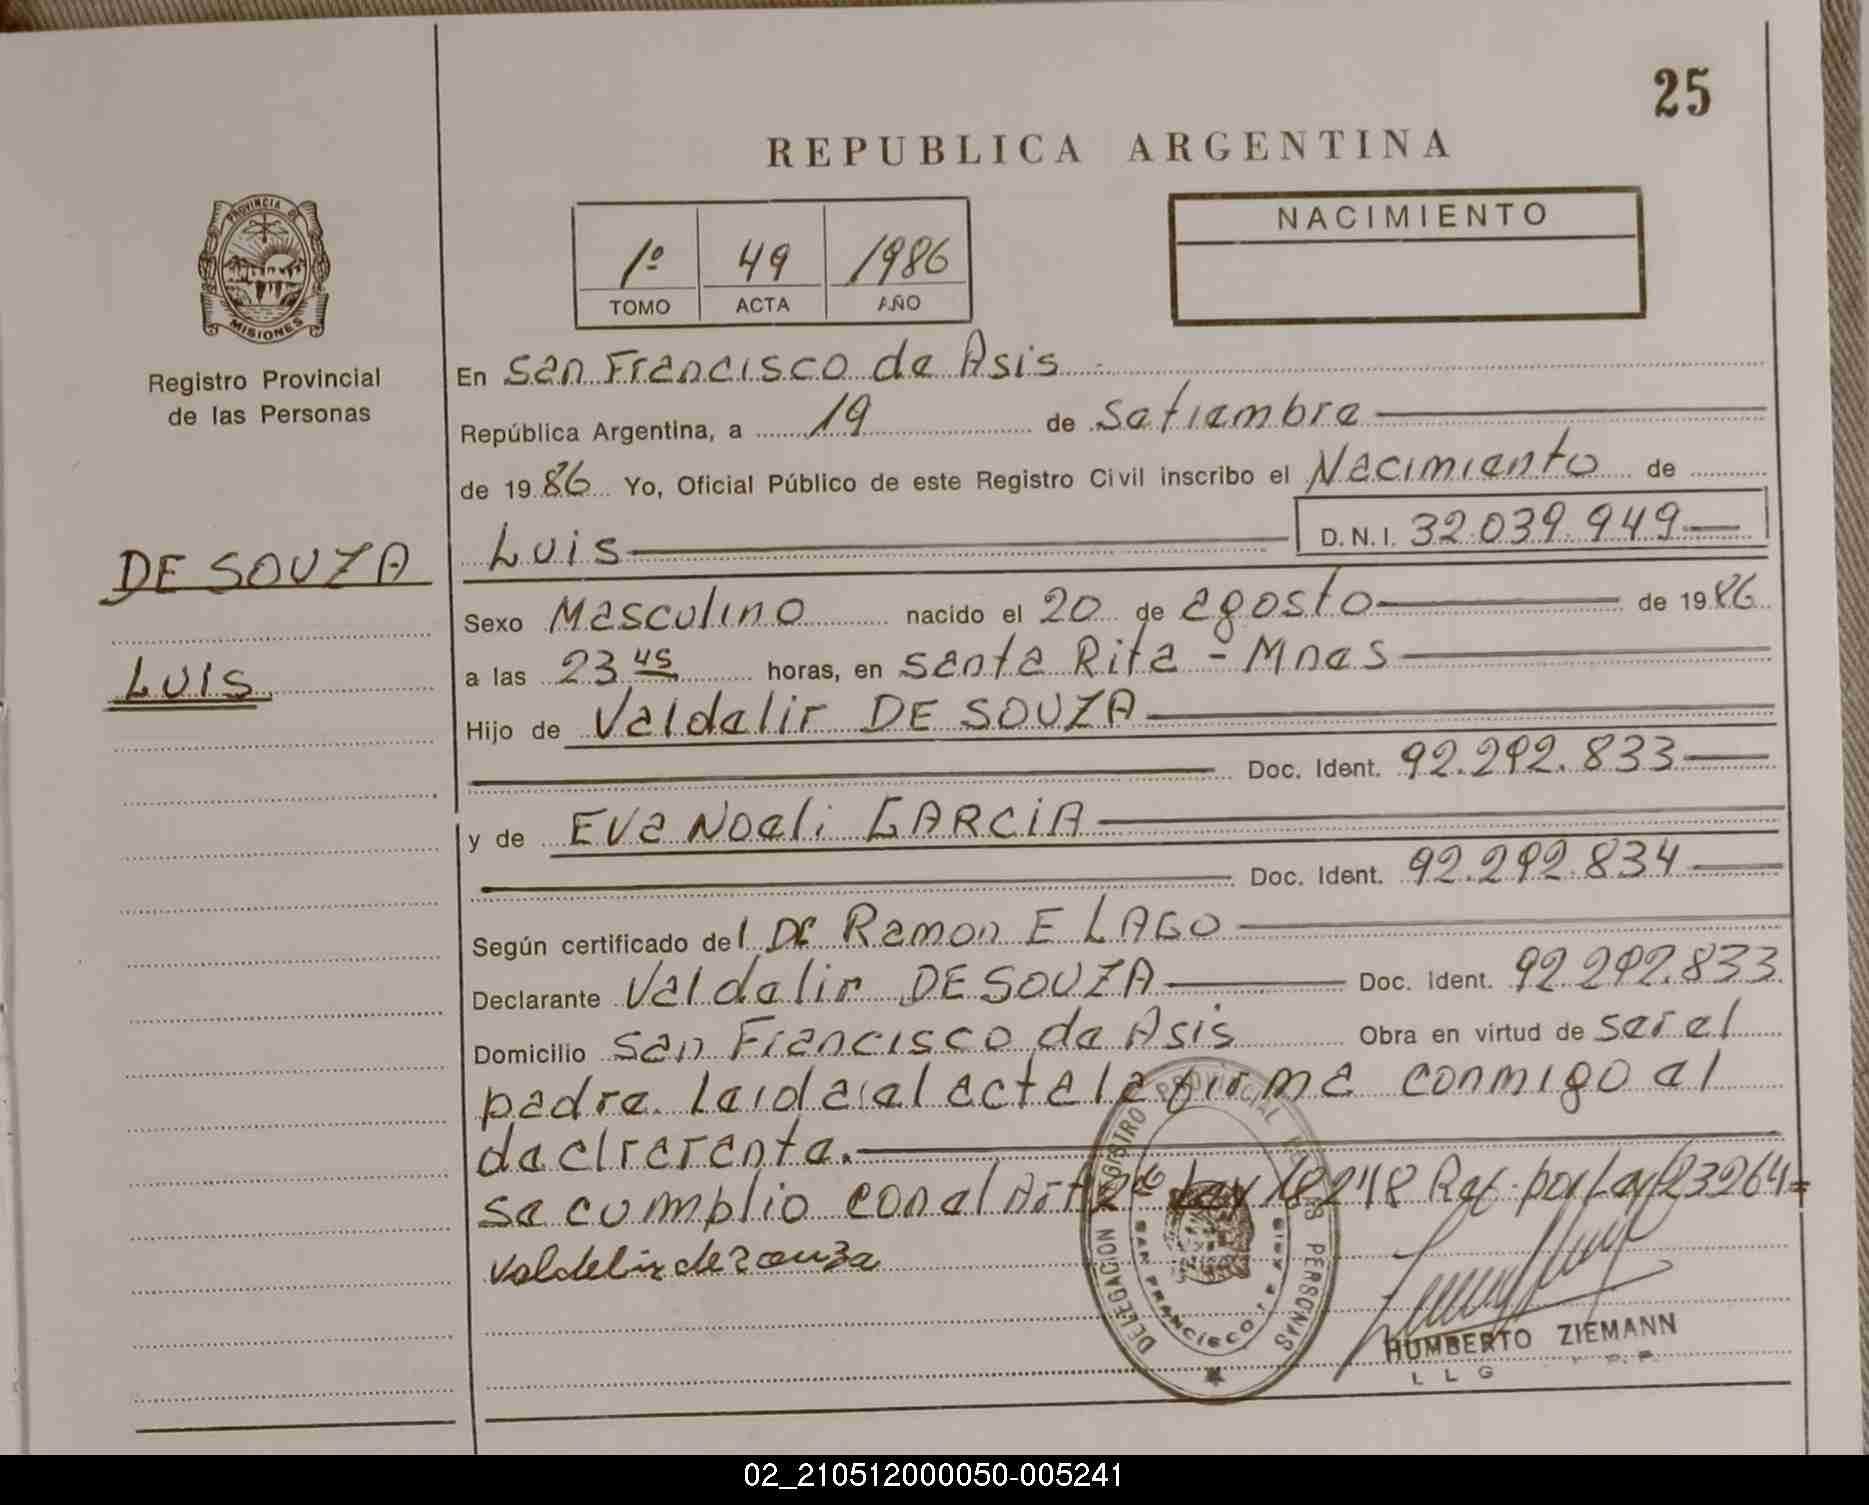 25
REPUBLICA ARGENTINA
PROVINCIA DE
MISIONES
Registro Provincial
de las Personas
1º 49 1986
TOMO ACTA AÑO
NACIMIENTO
En San Francisco de Asis
República Argentina, a 19 de Setiembre
de 1986 Yo, Oficial Público de este Registro Civil inscribo el Nacimiento de
Luis D.N.I. 32.039.949
DE SOUZA
LUIS
Sexo Masculino nacido el 20 de agosto de 1986
a las 23 45 horas, en Santa Rita - Mnes
Hijo de Valdelir DE SOUZA
Doc. Ident. 92.292.833
y de Eva Noeli GARCIA
Doc. Ident. 92.292.834
Según certificado del Dr Ramon E LAGO
Declarante Valdelir DE SOUZA Doc. Ident. 92.292.833
Domicilio San Francisco de Asis Obra en virtud de ser el
padre. Leida el acta la firma conmigo el
declrerente.
se cumplio con el Art 2º Ley 18248 Ref. por Ley 23264=
valdelir de souza
DELEGACION REGISTRO PROVINCIAL DE LAS PERSONAS
SAN FRANCISCO DE ASIS
HUMBERTO ZIEMANN
02_210512000050-005241